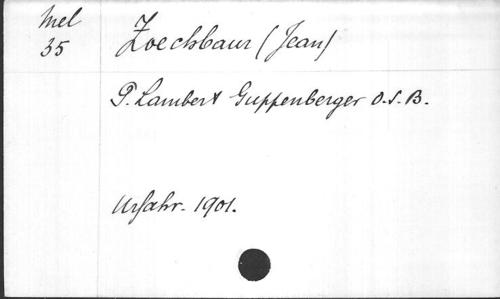 Mel
35
Zoeckbaur (Jean)
P. Lambert Guppenberger O.S.B.
Urfahr. 1901.